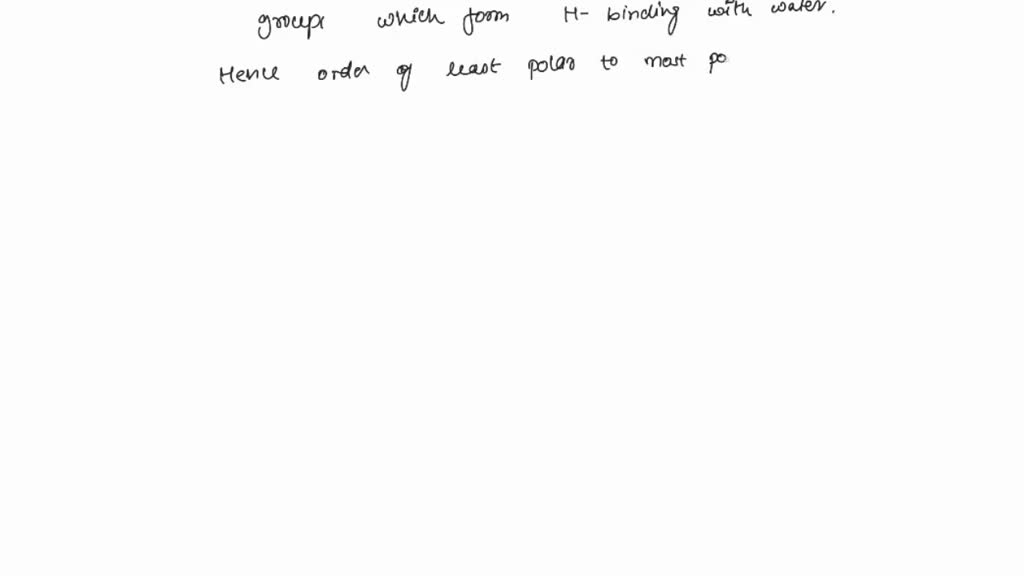 groups which form H- binding with water.
Hence order of least polar to most po